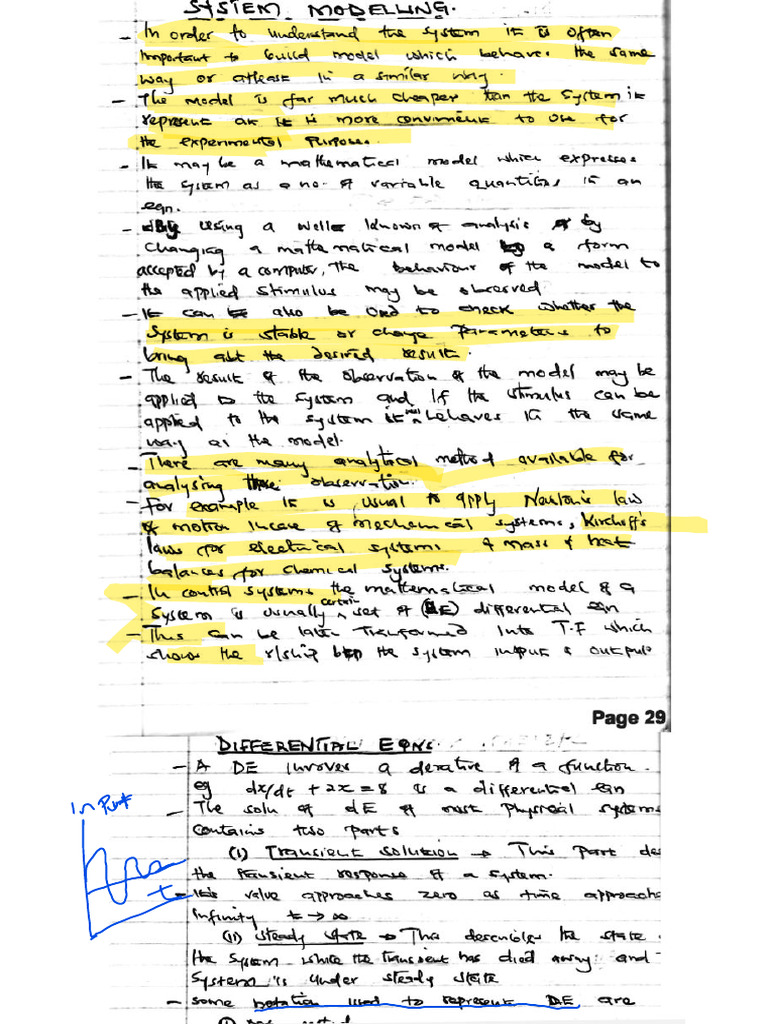 SYSTEM MODELLING.
- In order to understand the system it is often
important to build model which behaves the same
way or atleast in a similar way.
- The model is far much cheaper than the system it
represent as it is more convinient to use for
the experimental purposes.
- It may be a mathematical model which expresses
the system as a no. of variable quantities in an
eqn.
- Using a well known of analysis by
changing a mathematical model a form
accepted by a computer, The behaviour of the model to
the applied stimulus may be observed
- It can also be used to check whether the
system is stable or change parameters to
bring abt the desired result.
- The result of the observation of the model may be
applied to the system and if the stimulus can be
applied to the system it will behaves in the same
way as the model.
- There are many analytical method available for
analysing these observation.
- For example it is usual to apply Newton's law
of motion incase of mechanical systems, Kirchoff's
laws for electrical systems & mass & heat
balances for chemical systems.
- In control systems the mathematical model of a
system is usually certain set of (DE) differential eqn
- This can be later transformed into T.F which
shows the r/ship btn the system input & output
Page 29
DIFFERENTIAL EQNS.
- A DE invover a derative of a function.
eg dx/dt + 2x = 8 is a differential eqn
Input
- The soln of dE of most physical systems
contains two parts
(i) Transient solution → This part des
the transient response of a system.
t
- Its value approaches zero as time approache
infinity t → ∞
(ii) steady state → This describes the state
the system while the transient has died away and
system is under steady state
- some notation used to represent DE are